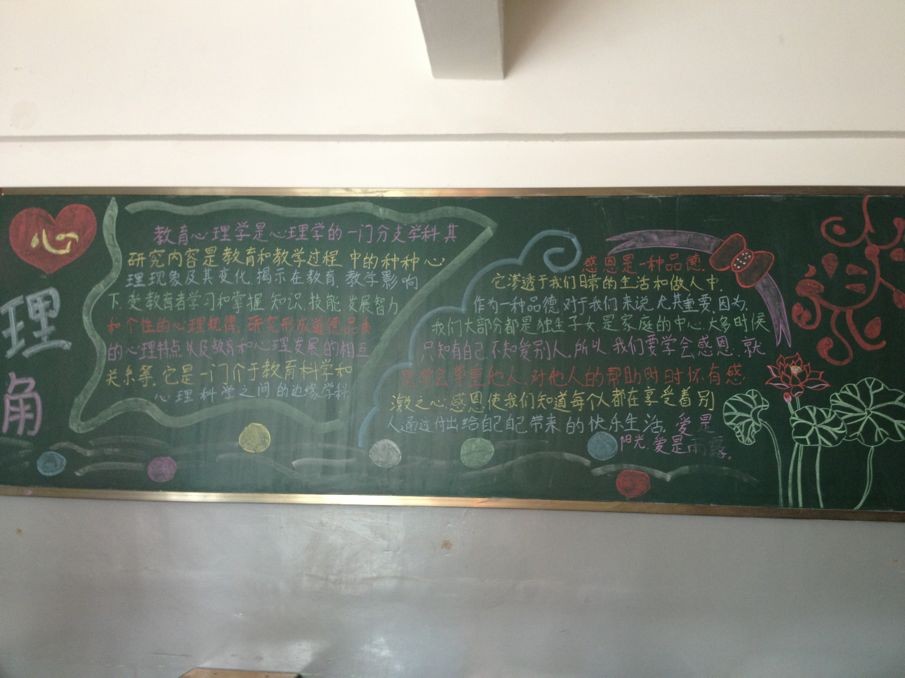 心
理
角
教育心理学是心理学的一门分支学科其
研究内容是教育和教学过程中的种种心
理现象及其变化,揭示在教育,教学影响
下,受教育者学习和掌握,知识,技能,发展智力
和个性的心理规律,研究形成道德品质
的心理特点,以及教育和心理发展的相互
关系等,它是一门介于教育科学和
心理科学之间的边缘学科
感恩是一种品德,
它渗透于我们日常的生活和做人中.
作为一种品德,对于我们来说尤其重要,因为
我们大部分都是独生子女是家庭的中心,大多时候
只知有自己,不知爱别人,所以,我们要学会感恩,就
要学会尊重他人,对他人的帮助时时怀有感
激之心,感恩使我们知道每个人都在享受着别
人通过付出给自己带来的快乐生活,爱是
阳光,爱是雨露.